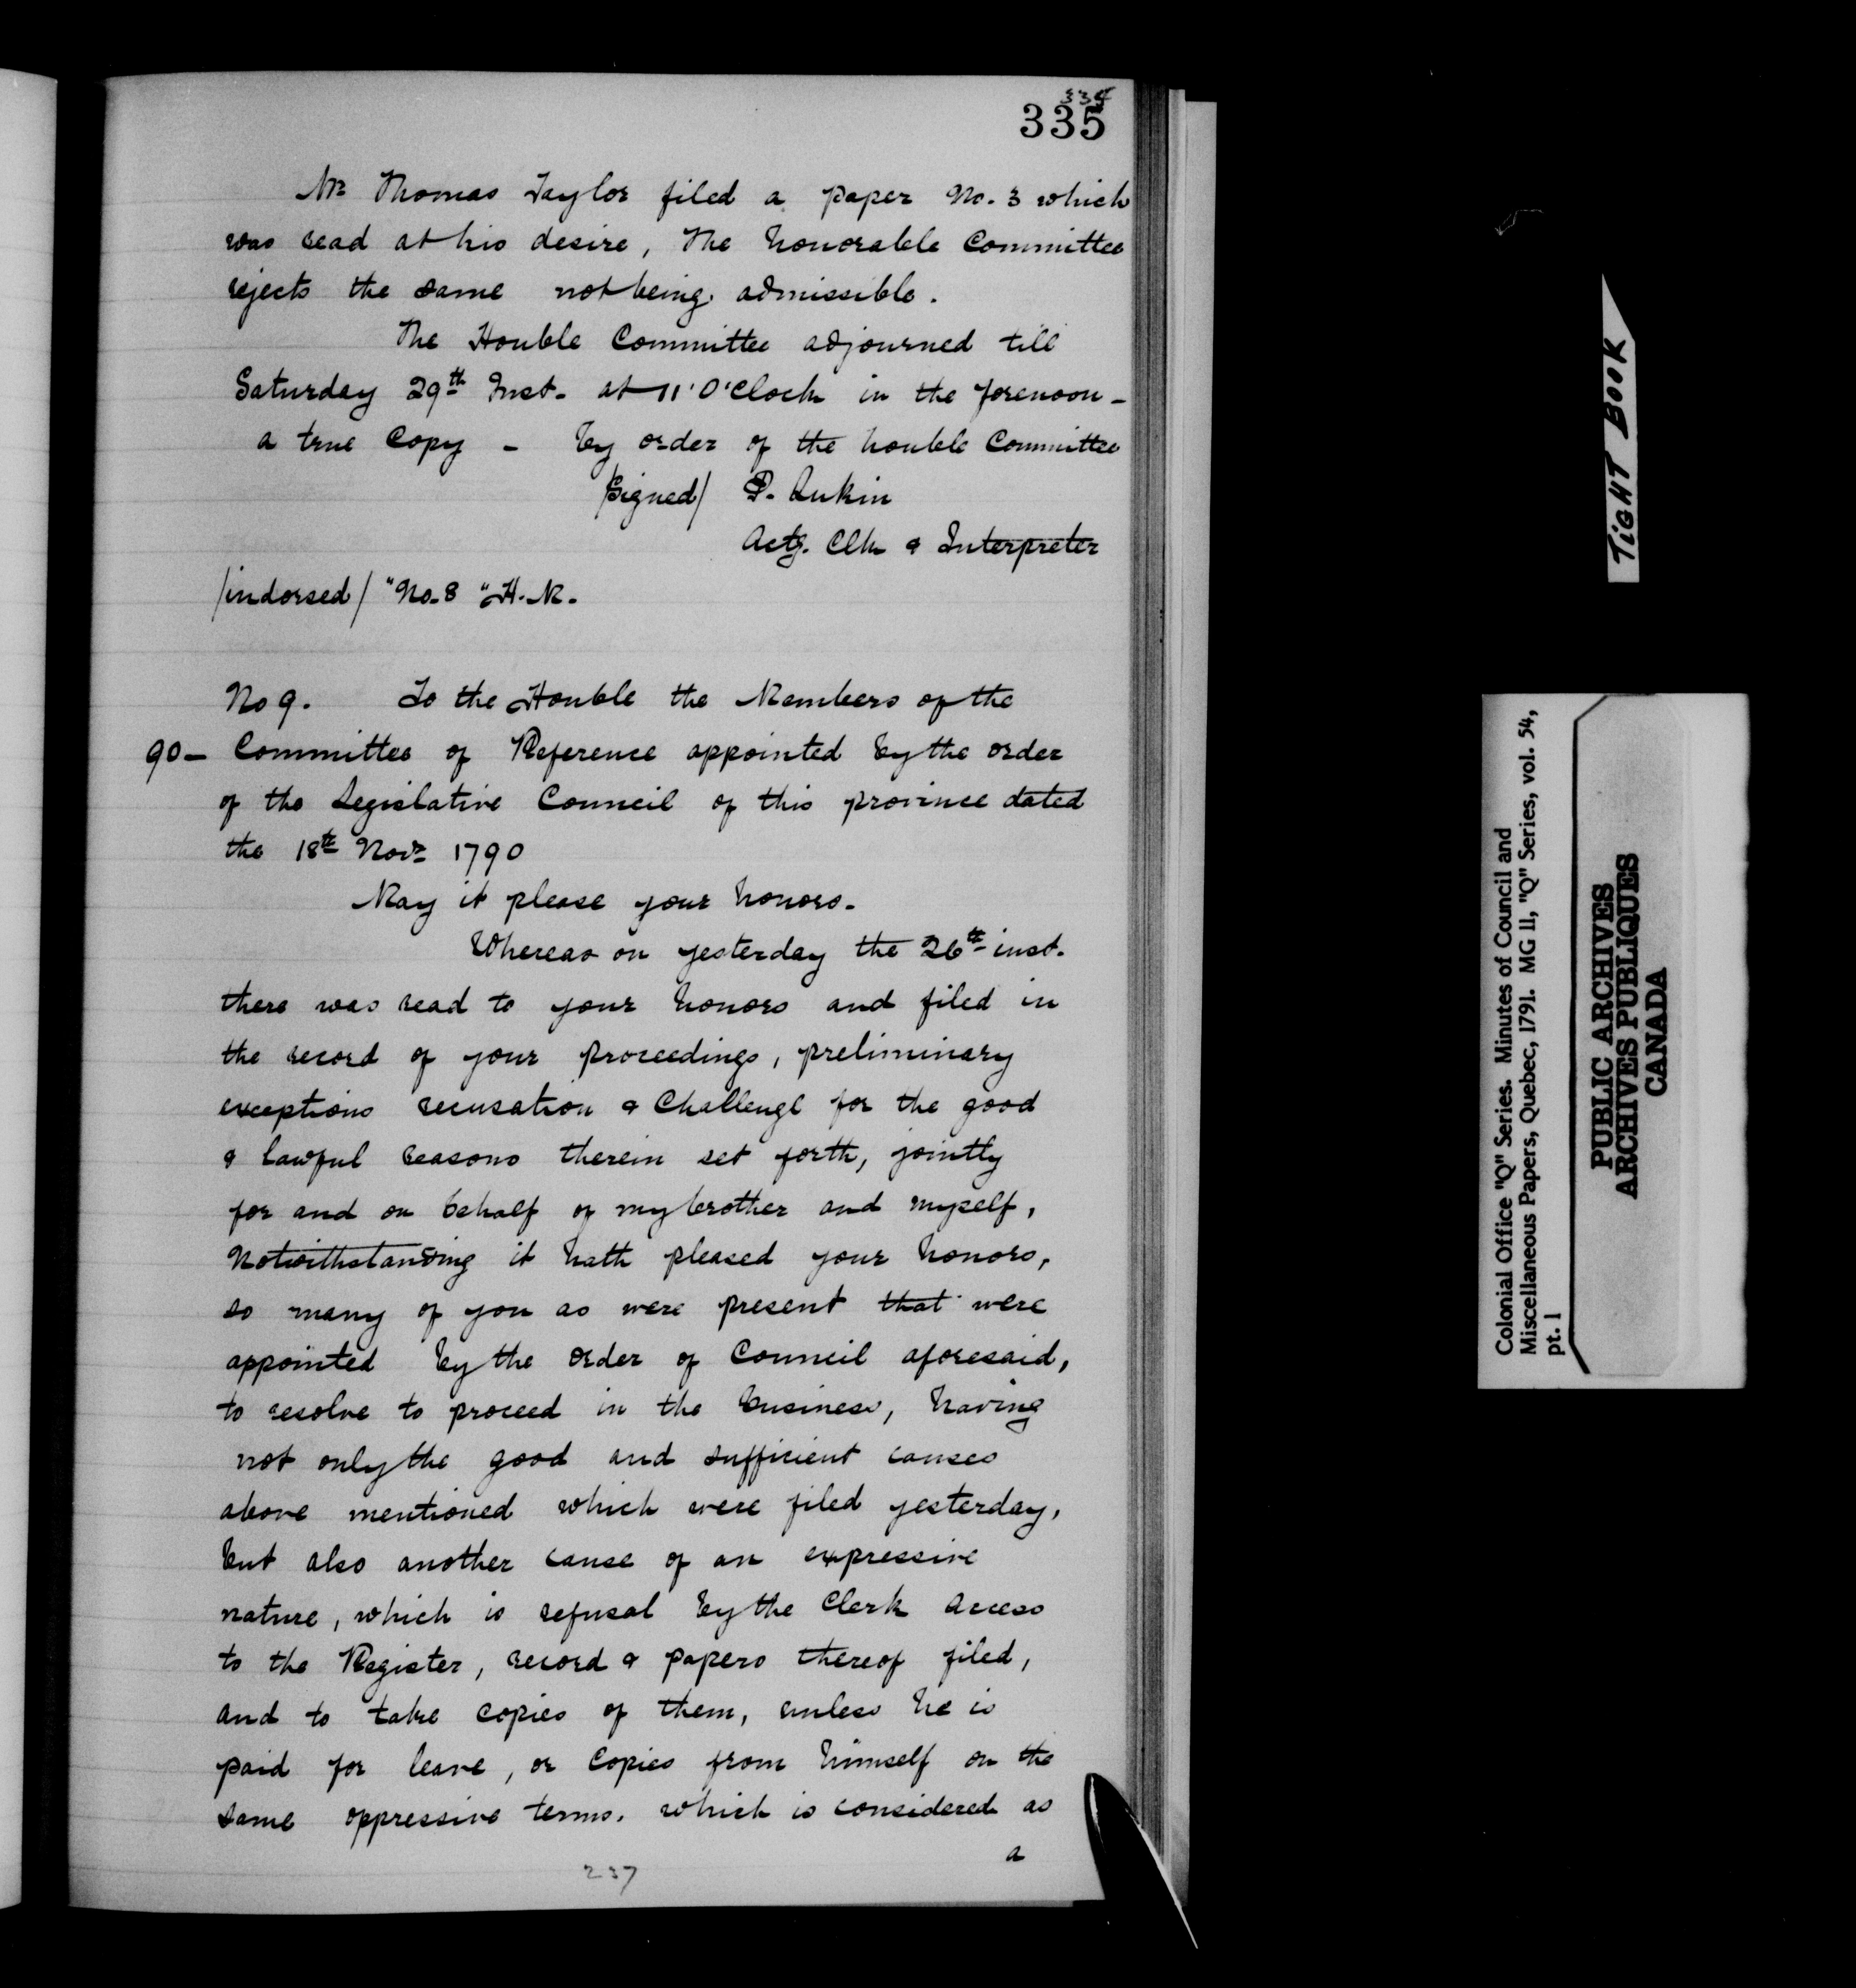 334
335
Mr Thomas Taylor filed a paper No. 3 which
was read at his desire, The honorable Committee
rejects the same not being admissible.
The Honble Committee adjourned till
Saturday 29th Inst. at 11 'O'Clock in the forenoon -
a true Copy - by order of the honble Committee
/Signed/ P.
Actg. Clk & Interpreter
/indorsed/ "No. 8 "H. M.
No 9. To the Honble the Members of the
90 - Committee of Reference appointed by the order
of the Legislative Council of this province dated
the 18th Novr 1790
May it please your honors.
Whereas on yesterday the 26th inst.
there was read to your honors and filed in
the record of your proceedings, preliminary
exceptions recusation & Challenge for the good
& lawful reasons therein set forth, jointly
for and on behalf of my brother and myself,
Notwithstanding it hath pleased your honors,
so many of you as were present that were
appointed by the order of Council aforesaid,
to resolve to proceed in the business, having
not only the good and sufficient causes
above mentioned which were filed yesterday,
but also another cause of an expressive
nature, which is refusal by the Clerk access
to the Register, record & papers thereof filed,
and to take copies of them, unless he is
paid for leave, or Copies from himself on the
same oppressive terms. which is considered as
a
237
TIGHT BOOK
Colonial Office "Q" Series. Minutes of Council and
Miscellaneous Papers, Quebec, 1791. MG 11, "Q" Series, vol. 54,
pt. 1
PUBLIC ARCHIVES
ARCHIVES PUBLIQUES
CANADA